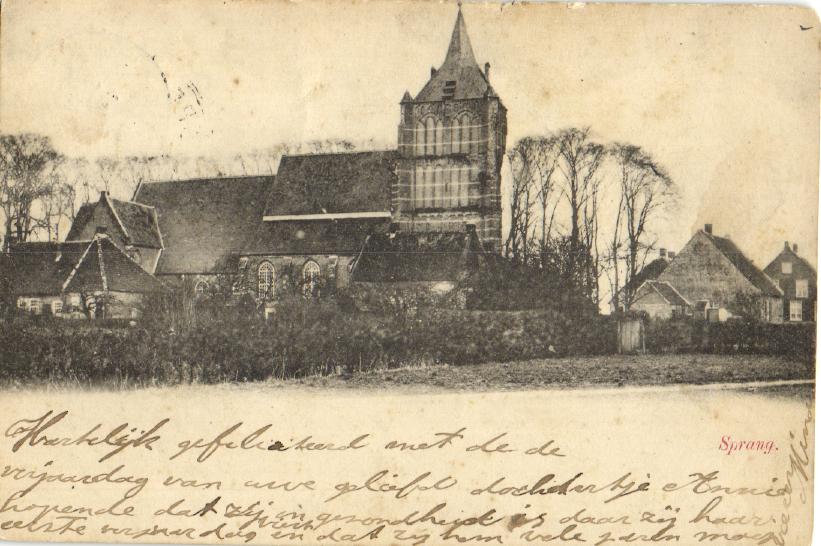 Sprang.
Hartelijk gefeliciteerd met de de
verjaardag van uwe geliefd dochtertje Annie
hopende dat zij in gezondheid is daar zij haar
eerste verjaardag viert en dat zij nem vele jaren moge